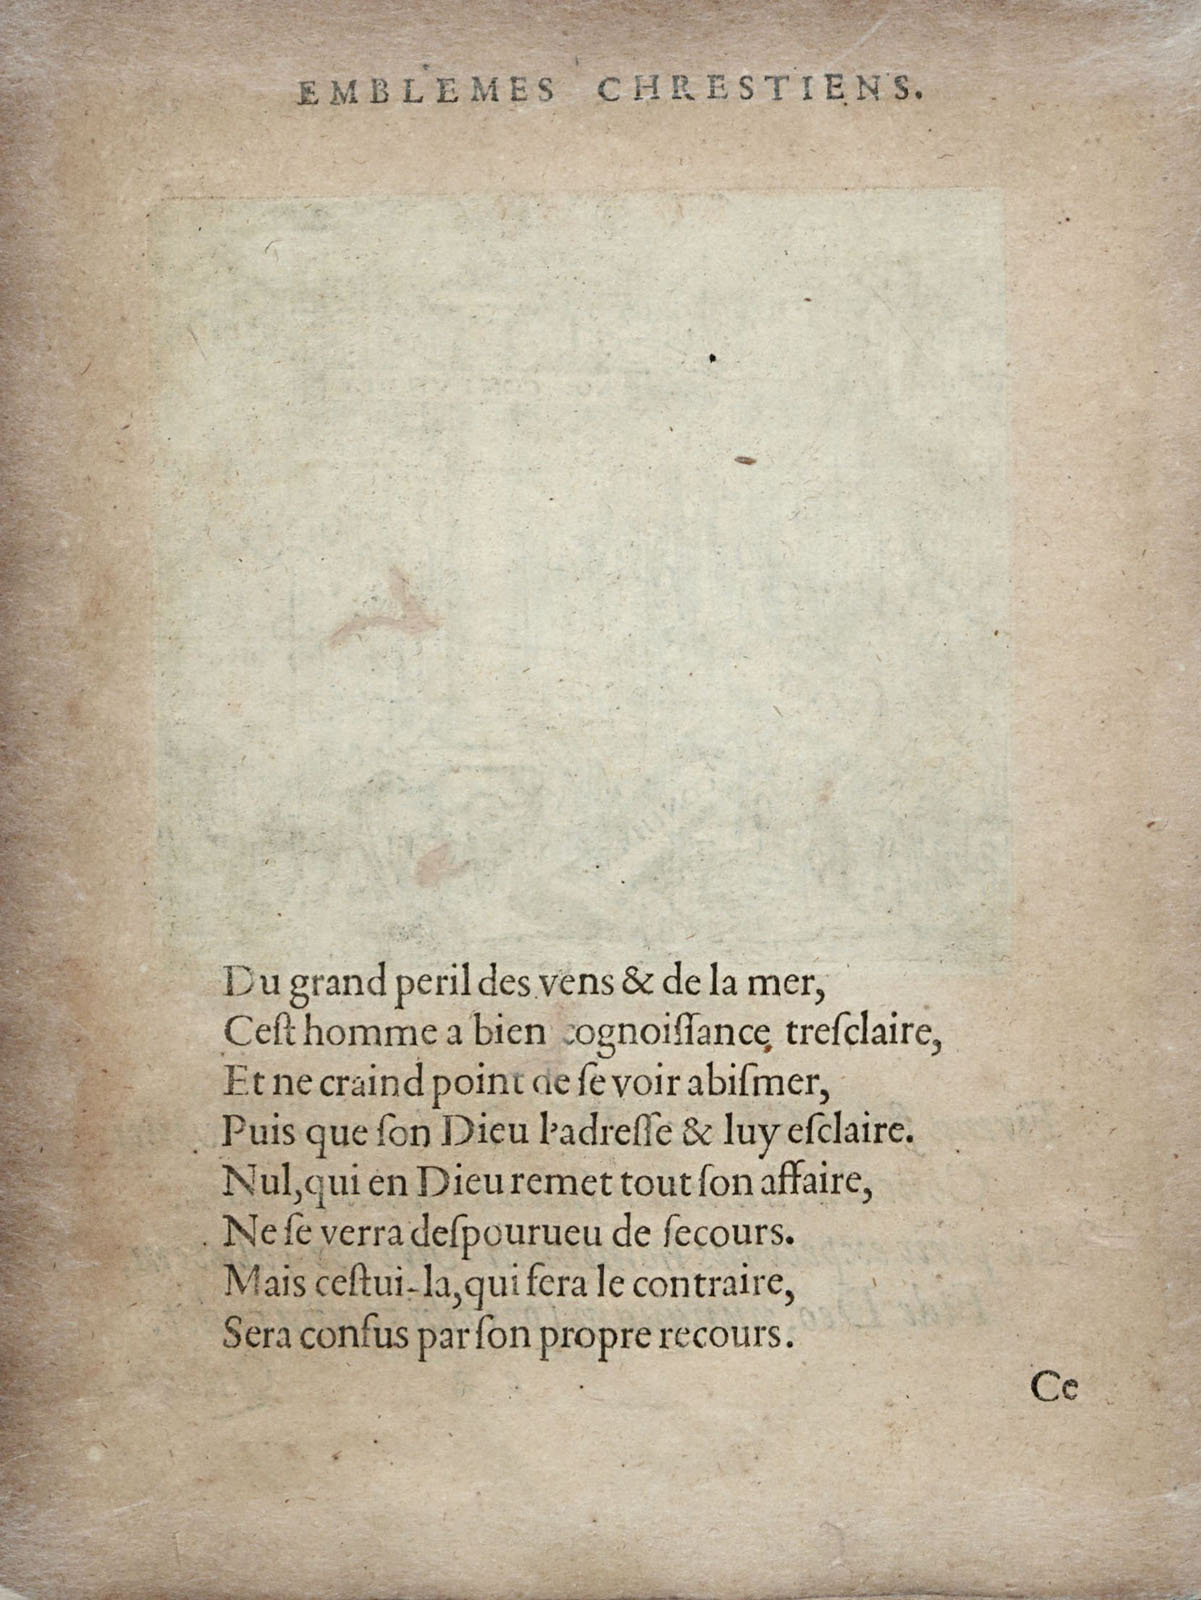 EMBLEMES CHRESTIENS.
Du grand peril des vens & de la mer,
Ceſt homme a bien cognoiſſance treſclaire,
Et ne craind point de ſe voir abiſmer,
Puis que ſon Dieu l'adreſſe & luy eſclaire.
Nul, qui en Dieu remet tout ſon affaire,
Ne ſe verra deſpourueu de ſecours.
Mais ceſtui-la, qui fera le contraire,
Sera confus par ſon propre recours.
Ce